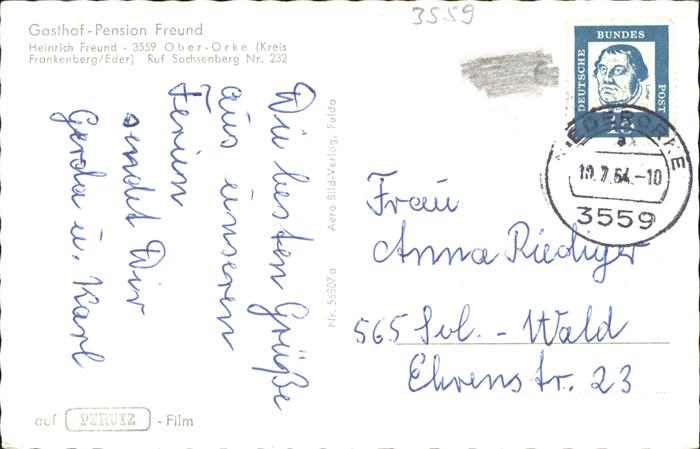 Gasthof-Pension Freund
Heinrich Freund · 3559 Ober-Orke (Kreis
Frankenberg/Eder) Ruf Sachsenberg Nr. 232
3559
DEUTSCHE
BUNDES
POST
15
NIEDERORKE
a
10.7.64.-10
3559
Die besten Grüße
aus unseren
Ferien
sendet Dir
Gerda u. Karl
Nr. 55307a Aero Bild-Verlag, Fulda
Frau
Anna Riediger
565 Sol. - Wald
Ehrenstr. 23
auf PERUTZ - Film